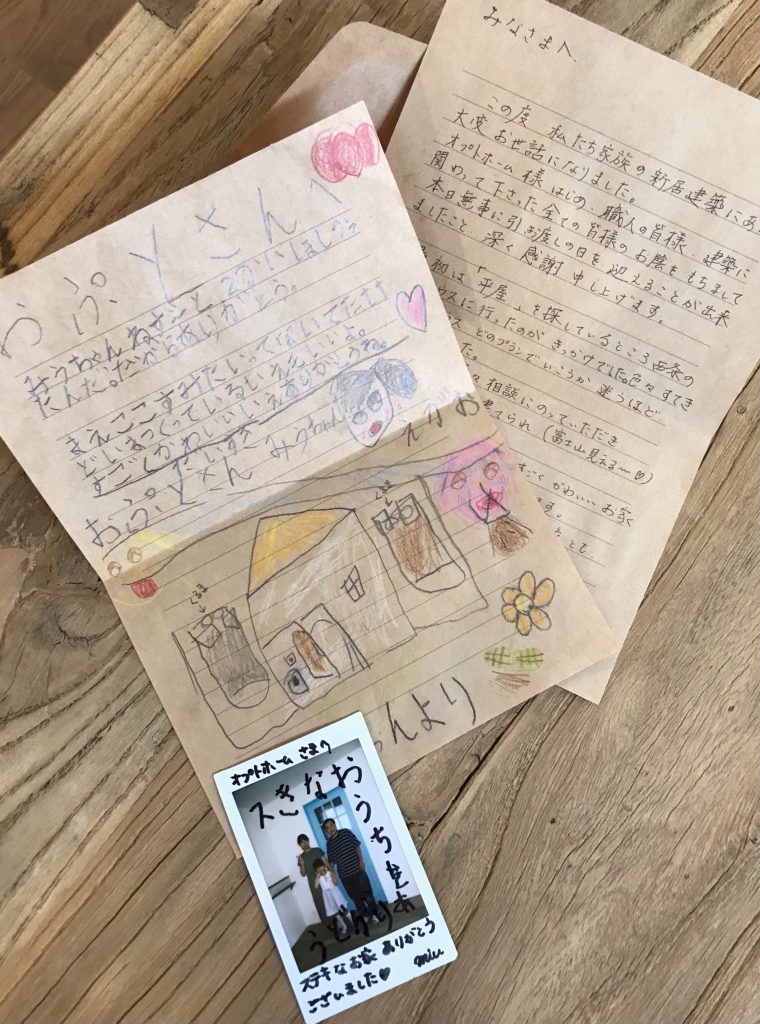 みなさまへ、
この度 私たち家族の新居建築にあ
大変お世話になりました。
オプトホーム様はじめ 職人の皆様、建築に
関わって下さった全ての皆様のお陰をもちまして
本日無事に引お渡しの日を迎えることが出来
ましたこと 深く感謝申し上げます。
初は「平屋」を探しているところ西条の
ウスに行ったのがきっかけでした。色々すてき
どのプランでいこうか 迷うほど
た。
相談にのっていただき
てられ (富士山見える〜♡)
すごくかわいいお家
す。
おぷとさんへ
みうちゃんねずーと
たんだ。だからありがとう。
まえここすみたいってないてたけ
どいまつくっているいええいいよ。
すごくかわいいいえありがとうね。
だいすき
おぷとさん みうちゃん
えがお
くるま
くるま
んより
オプトホーム さまへ
スきなおうち
ありがとう
ステキなお家 ありがとう
ございました♥
miu